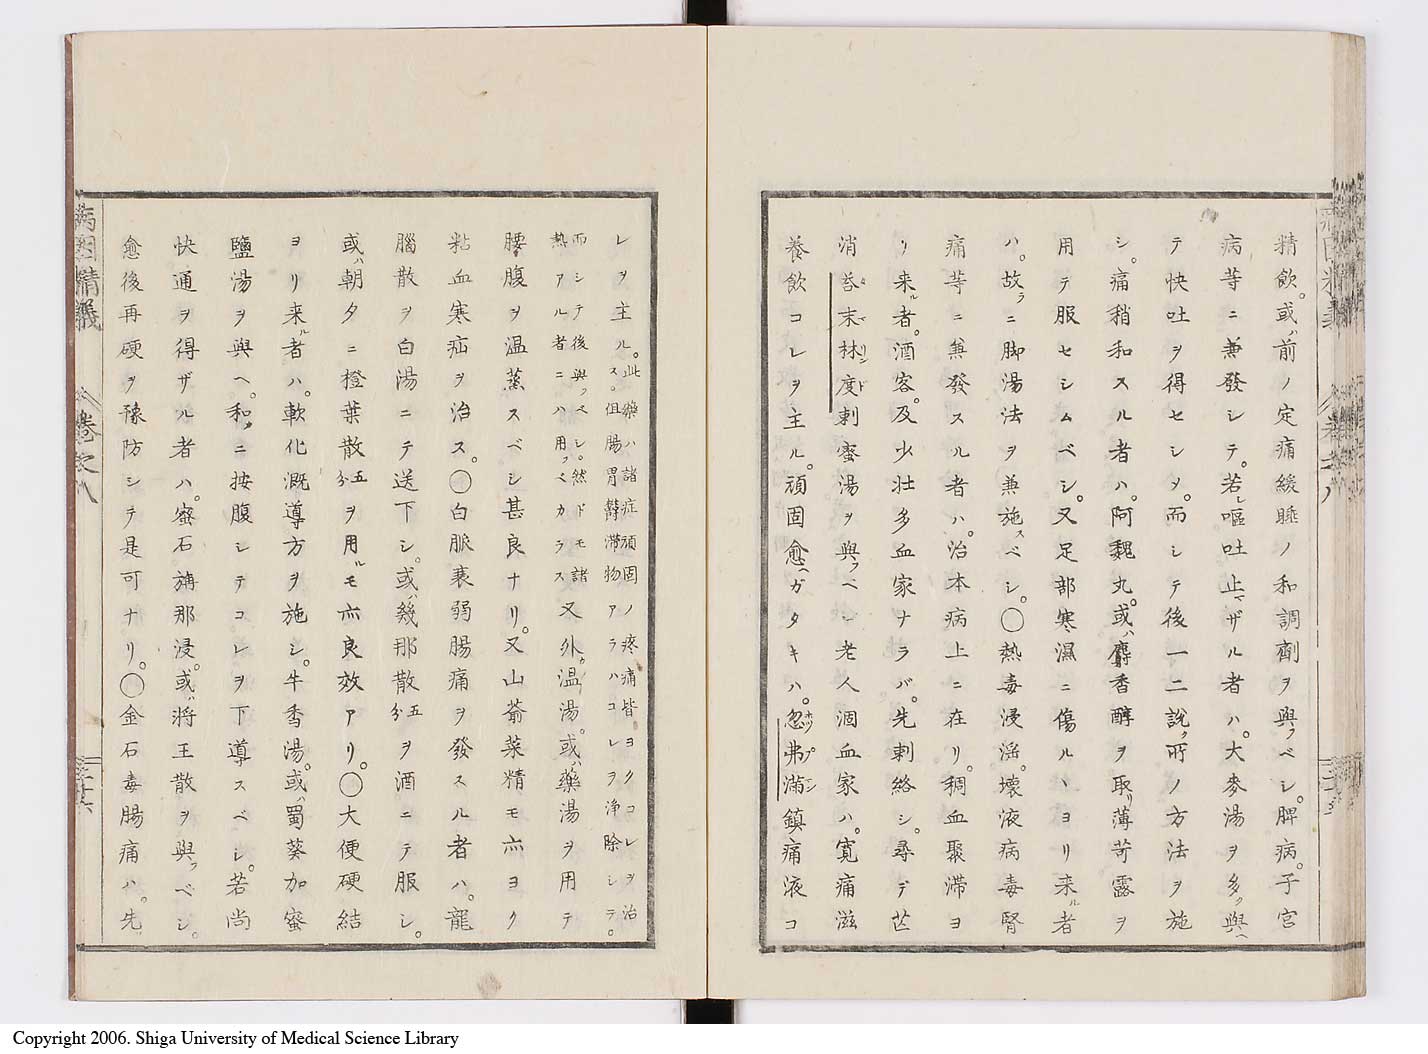 精飲。或ハ前ノ定痛緩睡ノ和調劑ヲ與フベシ。脾病。子宮
病等ニ兼發シテ。若シ嘔吐止マザル者ハ。大麥湯ヲ多ク與ヘ
テ快吐ヲ得セシメ。而シテ後一二説ク所ノ方法ヲ施
シ。痛稍和スル者ハ。阿魏丸。或ハ麝香醇ヲ取リ薄苛露ヲ
用テ服セシムベシ。又足部寒濕ニ傷ルヽヨリ来ル者
ハ。故ラニ脚湯法ヲ兼施スベシ。〇熱毒浸淫。壊液病毒腎
痛等ニ兼發スル者ハ。治本病上ニ在リ。稠血聚滞ヨ
リ来ル者。酒客。及少壮多血家ナラバ。先刺絡シ。尋デ芒
消荅末林度刺蜜湯ヲ與フベシ老人涸血家ハ。寛痛滋
養飲コレヲ主ル。頑固愈ヘガタキハ。忽弗滿鎮痛液コ
レヲ主ル。此藥ハ諸症頑固ノ疼痛皆ヨクコレヲ治
ス。但腸胃欝滞物アラハコレヲ浄除シテ。
而シテ後與フベシ。然ドモ諸
熱アル者ニハ用フベカラス又外温湯。或ハ藥湯ヲ用テ
腰腹ヲ温蒸スベシ甚良ナリ。又山菜精モ亦ヨク
粘血寒疝ヲ治ス。〇白脈衰弱腸痛ヲ發スル者ハ。龍
腦散ヲ白湯ニテ送下シ。或ハ幾那散五分ヲ酒ニテ服シ。
或ハ朝夕ニ橙葉散五分ヲ用ルモ亦良效アリ。〇大便硬結
ヨリ来ル者ハ。軟化漑導方ヲ施シ。牛香湯。或ハ蜀葵加蜜
鹽湯ヲ與ヘ。和ニ按腹シテコレヲ下導スベシ。若尚
快通ヲ得ザル者ハ。蜜石旃那浸。或ハ將王散ヲ與フベシ。
愈後再硬ヲ豫防シテ是可ナリ。〇金石毒腸痛ハ。先
病因精義 卷之八 三十六
Copyright 2006. Shiga University of Medical Science Library